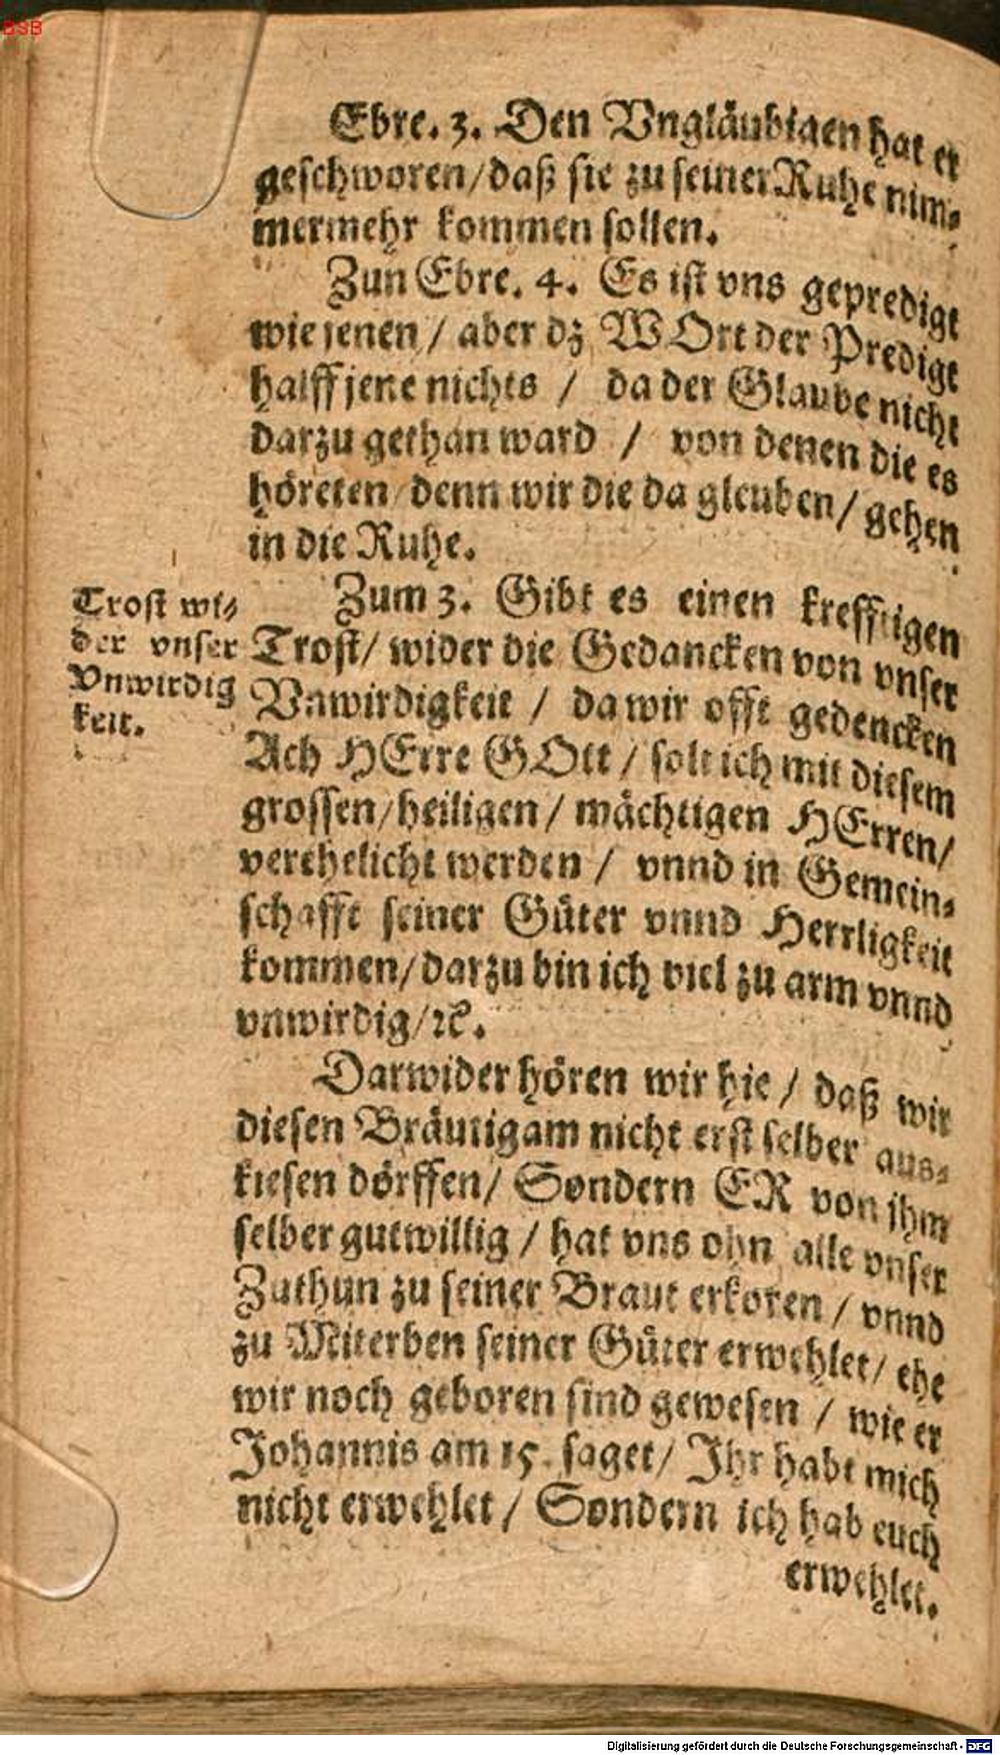 BSB
Ebre. 3. Den Vngläubigen hat er
geschworen/daß sie zu seiner Ruhe nim-
mermehr kommen sollen.
Zun Ebre. 4. Es ist vns gepredigt
wie jenen / aber dz WOrt der Predigt
halff jene nichts / da der Glaube nicht
darzu gethan ward / von denen die es
höreten denn wir die da gleuben/ gehen
in die Ruhe.
Zum 3. Gibt es einen krefftigen
Trost/ wider die Gedancken von vnser
Vnwirdigkeit / da wir offt gedencken
Ach HErre GOtt / solt ich mit diesem
grossen/heiligen/ mächtigen HErren/
verehelicht werden / vnnd in Gemein-
schafft seiner Güter vnnd Herrligkeit
kommen/darzu bin ich viel zu arm vnnd
vnwirdig/ꝛc.
Trost wi-
der vnser
Vnwirdig
keit.
Darwider hören wir hie / daß wir
diesen Bräutigam nicht erst selber aus-
kiesen dörffen/ Sondern ER von ihm
selber gutwillig / hat vns ohn alle vnser
Zuthun zu seiner Braut erkoren / vnnd
zu Miterben seiner Güter erwehlet/ ehe
wir noch geboren sind gewesen / wie er
Johannis am 15. saget/ Ihr habt mich
nicht erwehlet / Sondern ich hab euch
erwehlet.
Digitalisierung gefördert durch die Deutsche Forschungsgemeinschaft - DFG